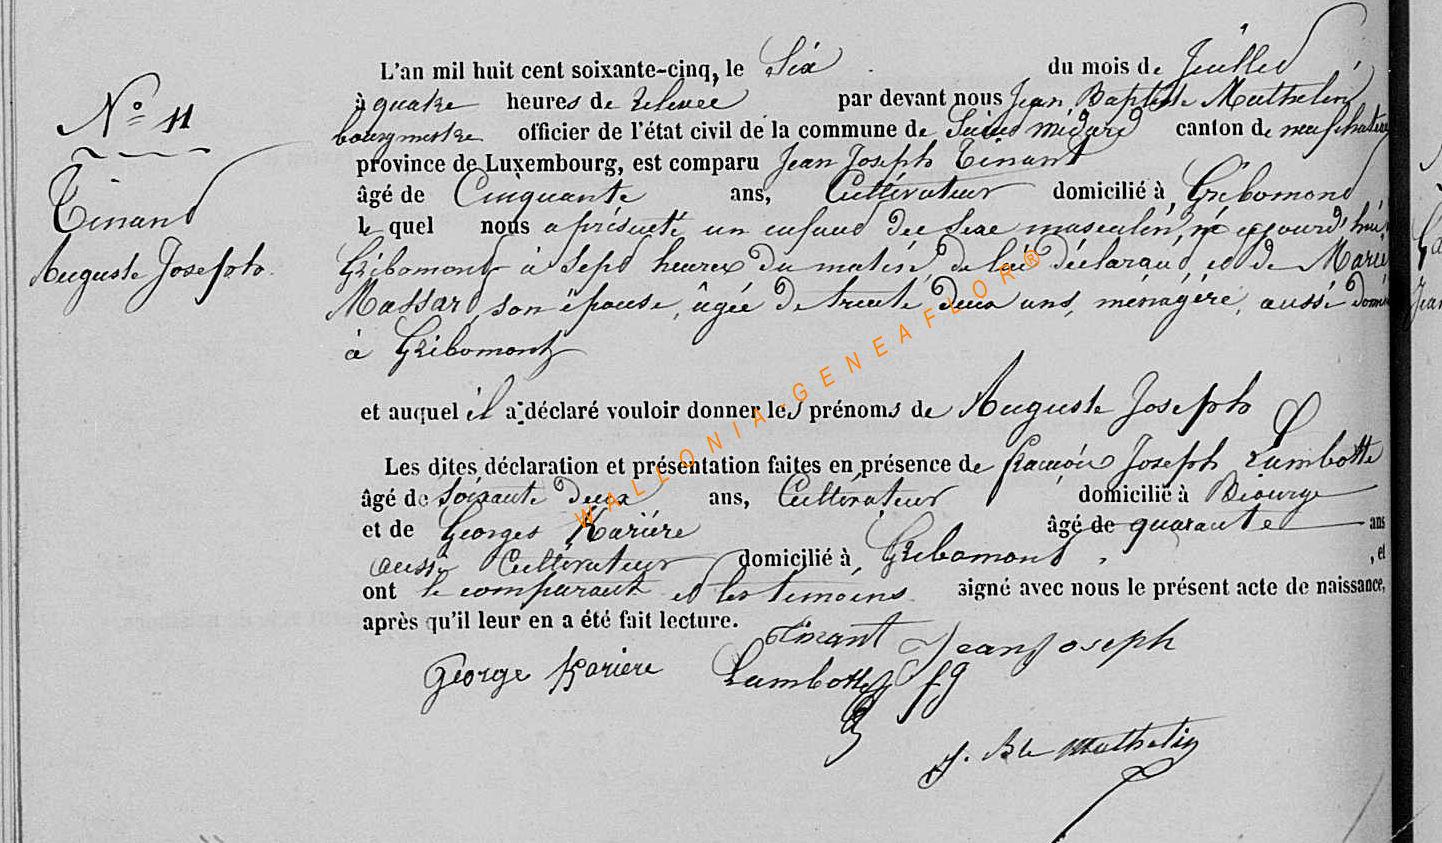 N° 11
Tinant
Auguste Joseph.
L'an mil huit cent soixante-cinq, le Six du mois de Juillet,
à quatre heures de relevée par devant nous Jean Baptiste Mathelin
bourgmestre officier de l'état civil de la commune de Saint Médard canton de neufchateau
province de Luxembourg, est comparu Jean Joseph Tinant
âgé de Cinquante ans, Cultivateur domicilié à Gribomont
le quel nous a présenté un enfant du sexe masculin, né aujourd'hui
Gribomont à sept heures du matin, de lui déclarant, et de Marie
Massard, son épouse, âgée de trente deux ans, ménagère, aussi domi
à Gribomont
et auquel il a déclaré vouloir donner les prénoms de Auguste Joseph
Les dites déclaration et présentation faites en présence de françois Joseph Lambotte
âgé de soixante deux ans, Cultivateur domicilié à Biourge
et de Georges Kariére âgé de quarante ans
aussi Cultivateur domicilié à Gribomont, et
ont le comparant et les temoins signé avec nous le présent acte de naissance,
après qu'il leur en a été fait lecture.
Tinant Jean Joseph
George Kariere Lambotte fg
J. Bte Mathelin
WALLONIA-GENEAFLOR®